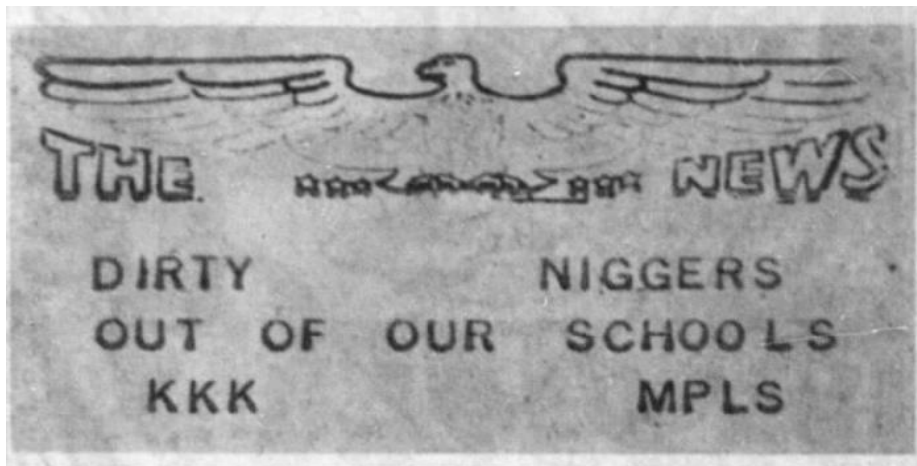 THE NEWS
DIRTY NIGGERS
OUT OF OUR SCHOOLS
KKK MPLS